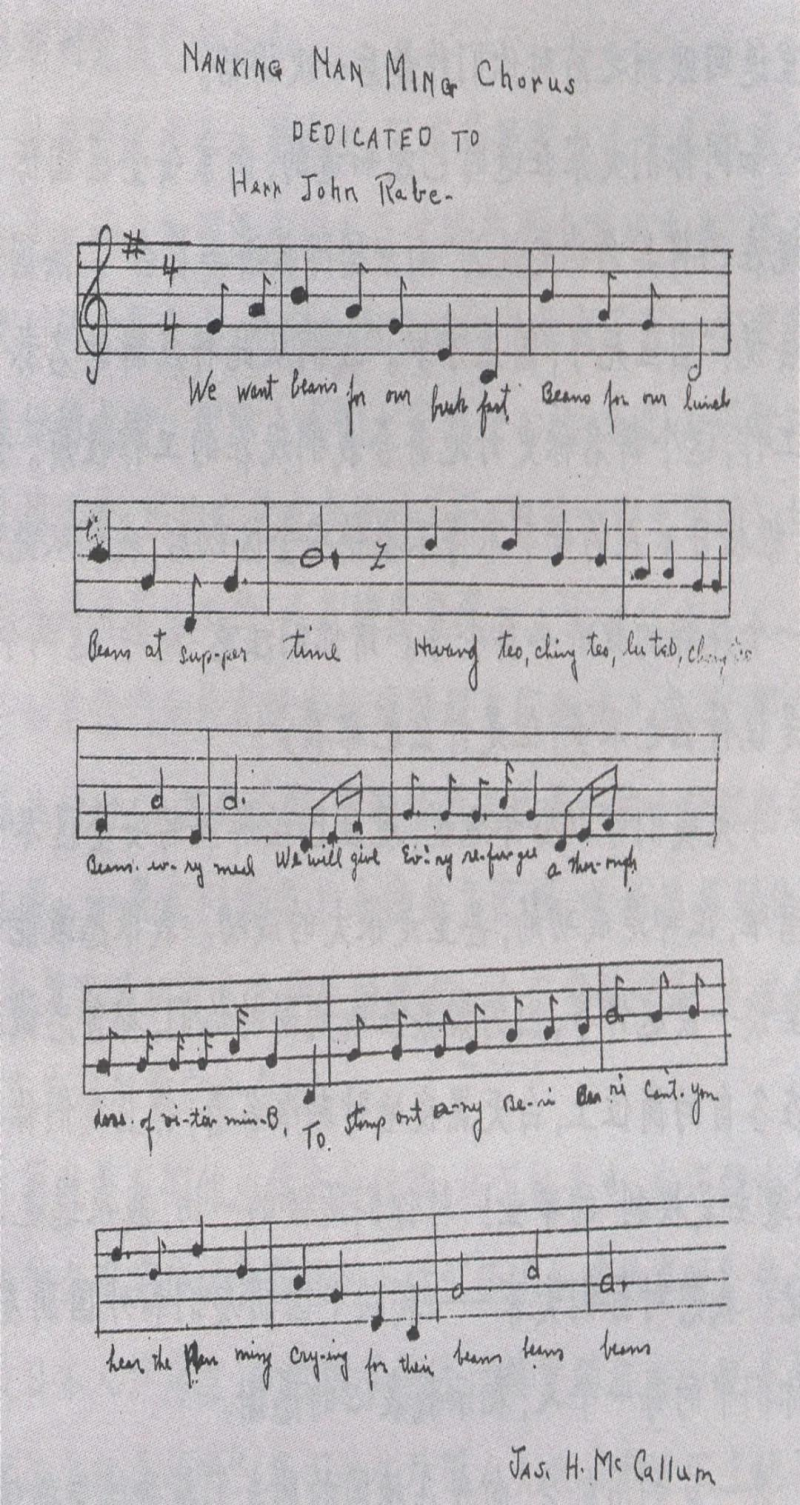 NANKING NAN MING Chorus
DEDICATED TO
Herr John Rabe-
4
4
We want beans for our break fast Beans for our lunch
Beans at sup-per time Hwang teo, ching teo, lu teo,
Beans ev-ry meal We will give Ev'ry re-fu-gee a thor-ough
dose of vi-ta-min-B, To stomp out a-ny Be-ri Be-ri Can't you
hear the Nan ming cry-ing for their beans beans beans
Jas. H. McCallum